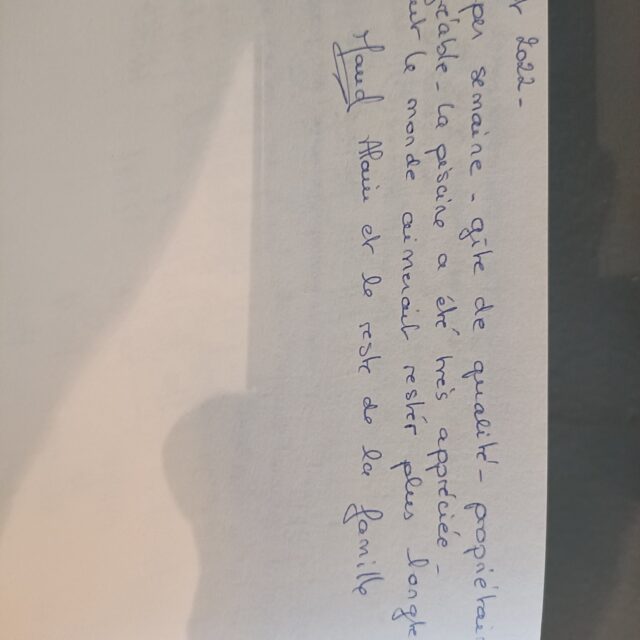 t 2022-
per semaine - gîte de qualité - propriétai
réable - la piscine a été très appréciée -
ut le monde aimerait rester plus longte
Maud Alain et le reste de la famille